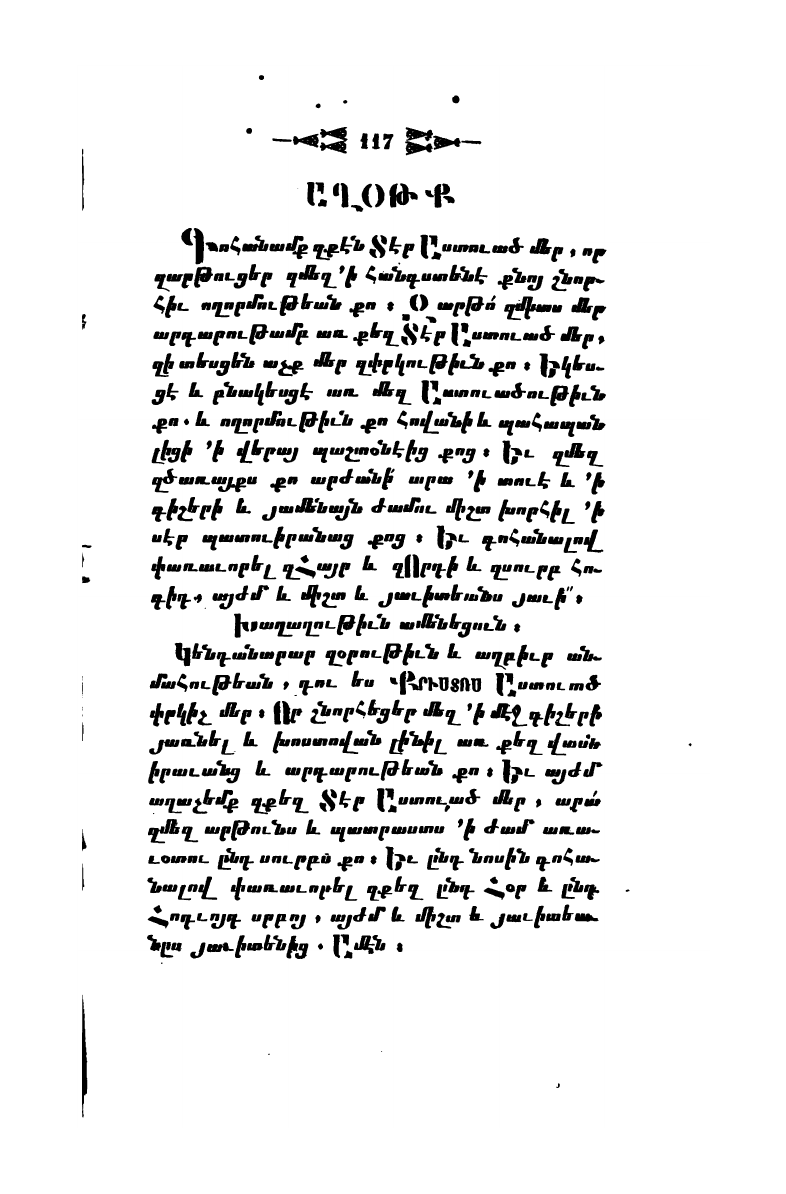 117
ԱՂՕԹՔ
Գոհանամք զքէն Տէր Աստուած մեր, որ
զարթուցեր զմեզ ՚ի հանգստենէ քնոյ շնոր-
հիւ ողորմութեան քո։ Զարթո՛ զմիտս մեր
արդարութամբ առ քեզ Տէր Աստուած մեր,
զի տեսցեն աչք մեր զփրկութիւն քո։ Եկես-
ցէ և բնակեսցէ առ մեզ Աստուածութիւն
քո. և ողորմութիւն քո հովանի և պահապան
լիցի ՚ի վերայ պաշտօնէից քոց։ Եւ զմեզ
զծառայքս քո արժանի՛ արա ՚ի տուէ և ՚ի
գիշերի և յամենայն ժամու միշտ խորհիլ ՚ի
սէր պատուիրանաց քոց։ Եւ գոհանալով
փառաւորել զՀայր և զՈրդի և զսուրբ Հո-
գիդ, այժմ և միշտ և յաւիտեանս յաւի՟։
Խաղաղութիւն ամենեցուն։
Կենդանարար զօրութիւն և աղբիւր ան-
մահութեան, դու ես ՔՐԻՍՏՈՍ Աստուած
փրկիչ մեր։ Որ շնորհեցեր մեզ ՚ի մէջ գիշերի
յառնել և խոստովան լինիլ առ քեզ վասն
իրաւանց և արդարութեան քո։ Եւ այժմ
աղաչեմք զքեզ Տէր Աստուած մեր, արա՛
զմեզ արթունս և պատրաստս ՚ի ժամ առա-
ւօտու ընդ սուրբս քո։ Եւ ընդ նոսին գոհա-
նալով փառաւորել զքեզ ընդ Հօր և ընդ
Հոգւոյդ սրբոյ, այժմ և միշտ և յաւիտեա-
նըս յաւիտենից. Ամէն։